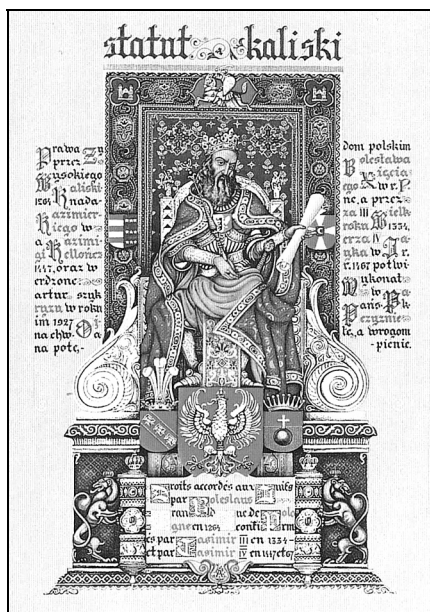 statut kaliski
rawa Ży
przez
ysokiego
aliski
1264 nada
azimier-
kiego w
a azimi
giellończ
1447, oraz w
erdzone
artur szyk
ryżu w rokn
im 1927
na chw
na potę,-
dom polskim
olesława
ięcia
ego w r.
ne, a przez
za III ielk
roku 1334,
erza IV
yka w r.
r. 1467 potwi
ykonał
w a-
Pańs
czyznie
le, a wrogom
-pienie.
Droits accordés aux Juifs
par Boleslaus
ran d ne de olo
gne en 1264 confirm
és par Kasimir III en 1334-
et par Kasimir IV en 1447 et 67